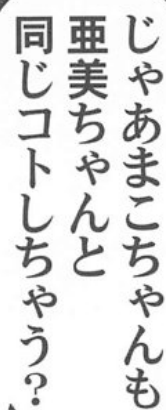 じゃあまこちゃんも
亜美ちゃんと
同じコトしちゃう？